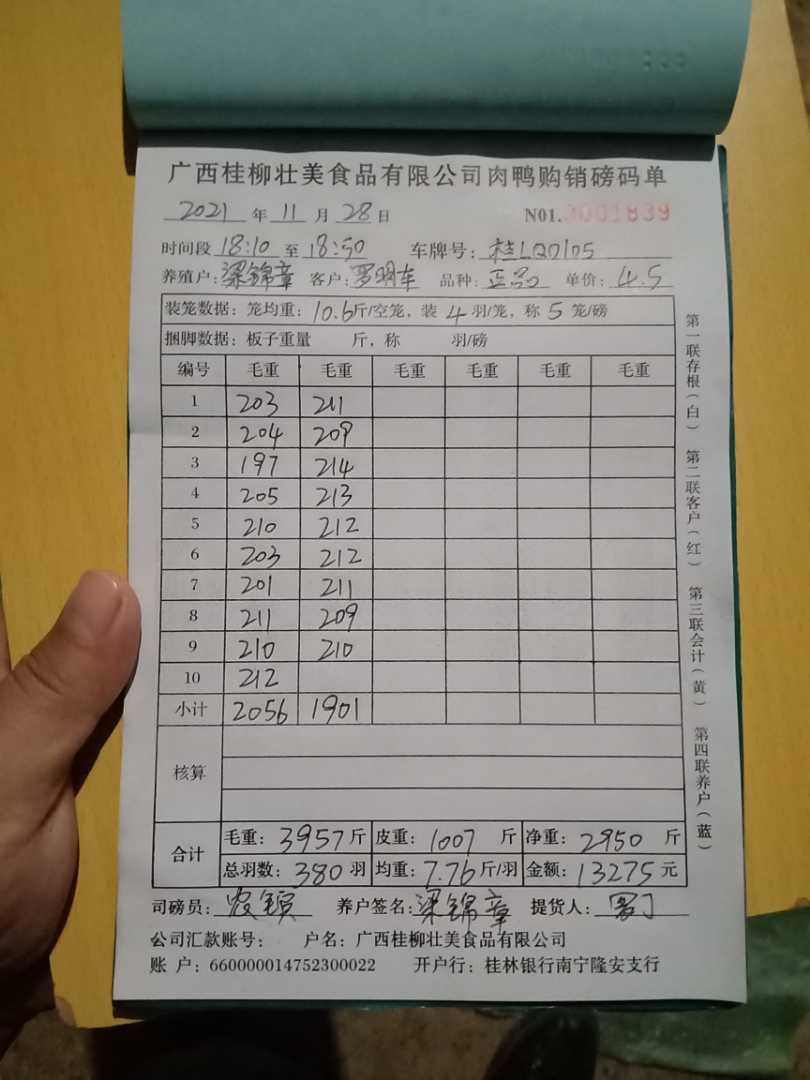 广西桂柳壮美食品有限公司肉鸭购销磅码单
2021 年 11 月 28 日 N01.0001839
时间段 18:10 至 18:50 车牌号: 桂LQ0105
养殖户: 梁锦章 客户: 罗明车 品种: 正品 单价: 4.5
装笼数据: 笼均重: 10.6斤/空笼, 装 4 羽/笼, 称 5 笼/磅
捆脚数据: 板子重量 斤, 称 羽/磅
编号 毛重 毛重 毛重 毛重 毛重 毛重
1 203 211
2 204 209
3 197 214
4 205 213
5 210 212
6 203 212
7 201 211
8 211 209
9 210 210
10 212
小计 2056 1901
核算
合计 毛重: 3957斤 皮重: 1007 斤 净重: 2950 斤
总羽数: 380 羽 均重: 7.76斤/羽 金额: 13275元
司磅员: 农 养户签名: 梁锦章 提货人:
公司汇款账号: 户名: 广西桂柳壮美食品有限公司
账 户: 660000014752300022 开户行: 桂林银行南宁隆安支行
第一联存根(白) 第二联客户(红) 第三联会计(黄) 第四联养户(蓝)